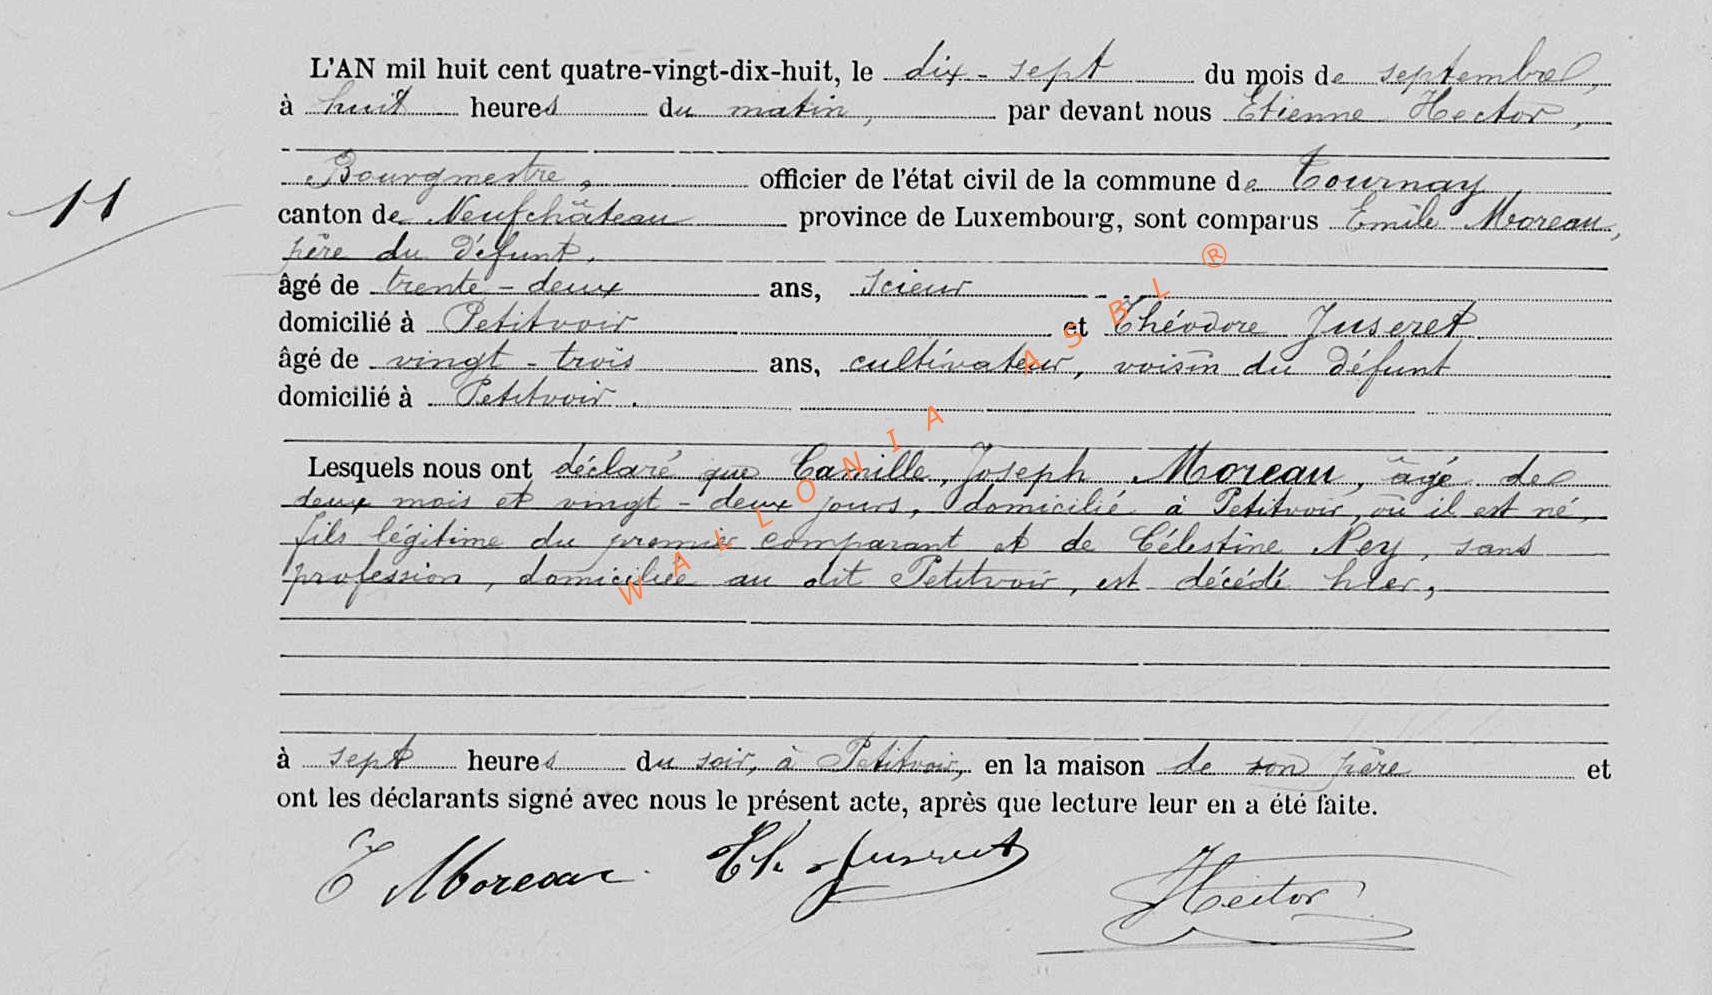 L'AN mil huit cent quatre-vingt-dix-huit, le dix-sept du mois de septembre,
à huit heures du matin, par devant nous Etienne Hector,
Bourgmestre, officier de l'état civil de la commune de Tournay,
11
canton de Neufchâteau province de Luxembourg, sont comparus Emile Moreau,
père du défunt,
âgé de trente-deux ans, scieur
domicilié à Petitvoir et Théodore Juseret
âgé de vingt-trois ans, cultivateur, voisin du défunt
domicilié à Petitvoir.
Lesquels nous ont déclaré que Camille, Joseph Moreau, âgé de
deux mois et vingt-deux jours, domicilié à Petitvoir, où il est né,
fils légitime du premier comparant et de Célestine Ney, sans
profession, domiciliée au dit Petitvoir, est décédé hier,
à sept heures du soir, à Petitvoir, en la maison de son père et
ont les déclarants signé avec nous le présent acte, après que lecture leur en a été faite.
E Moreau. Th Juseret
Hector
WALLONIA ASBL ®